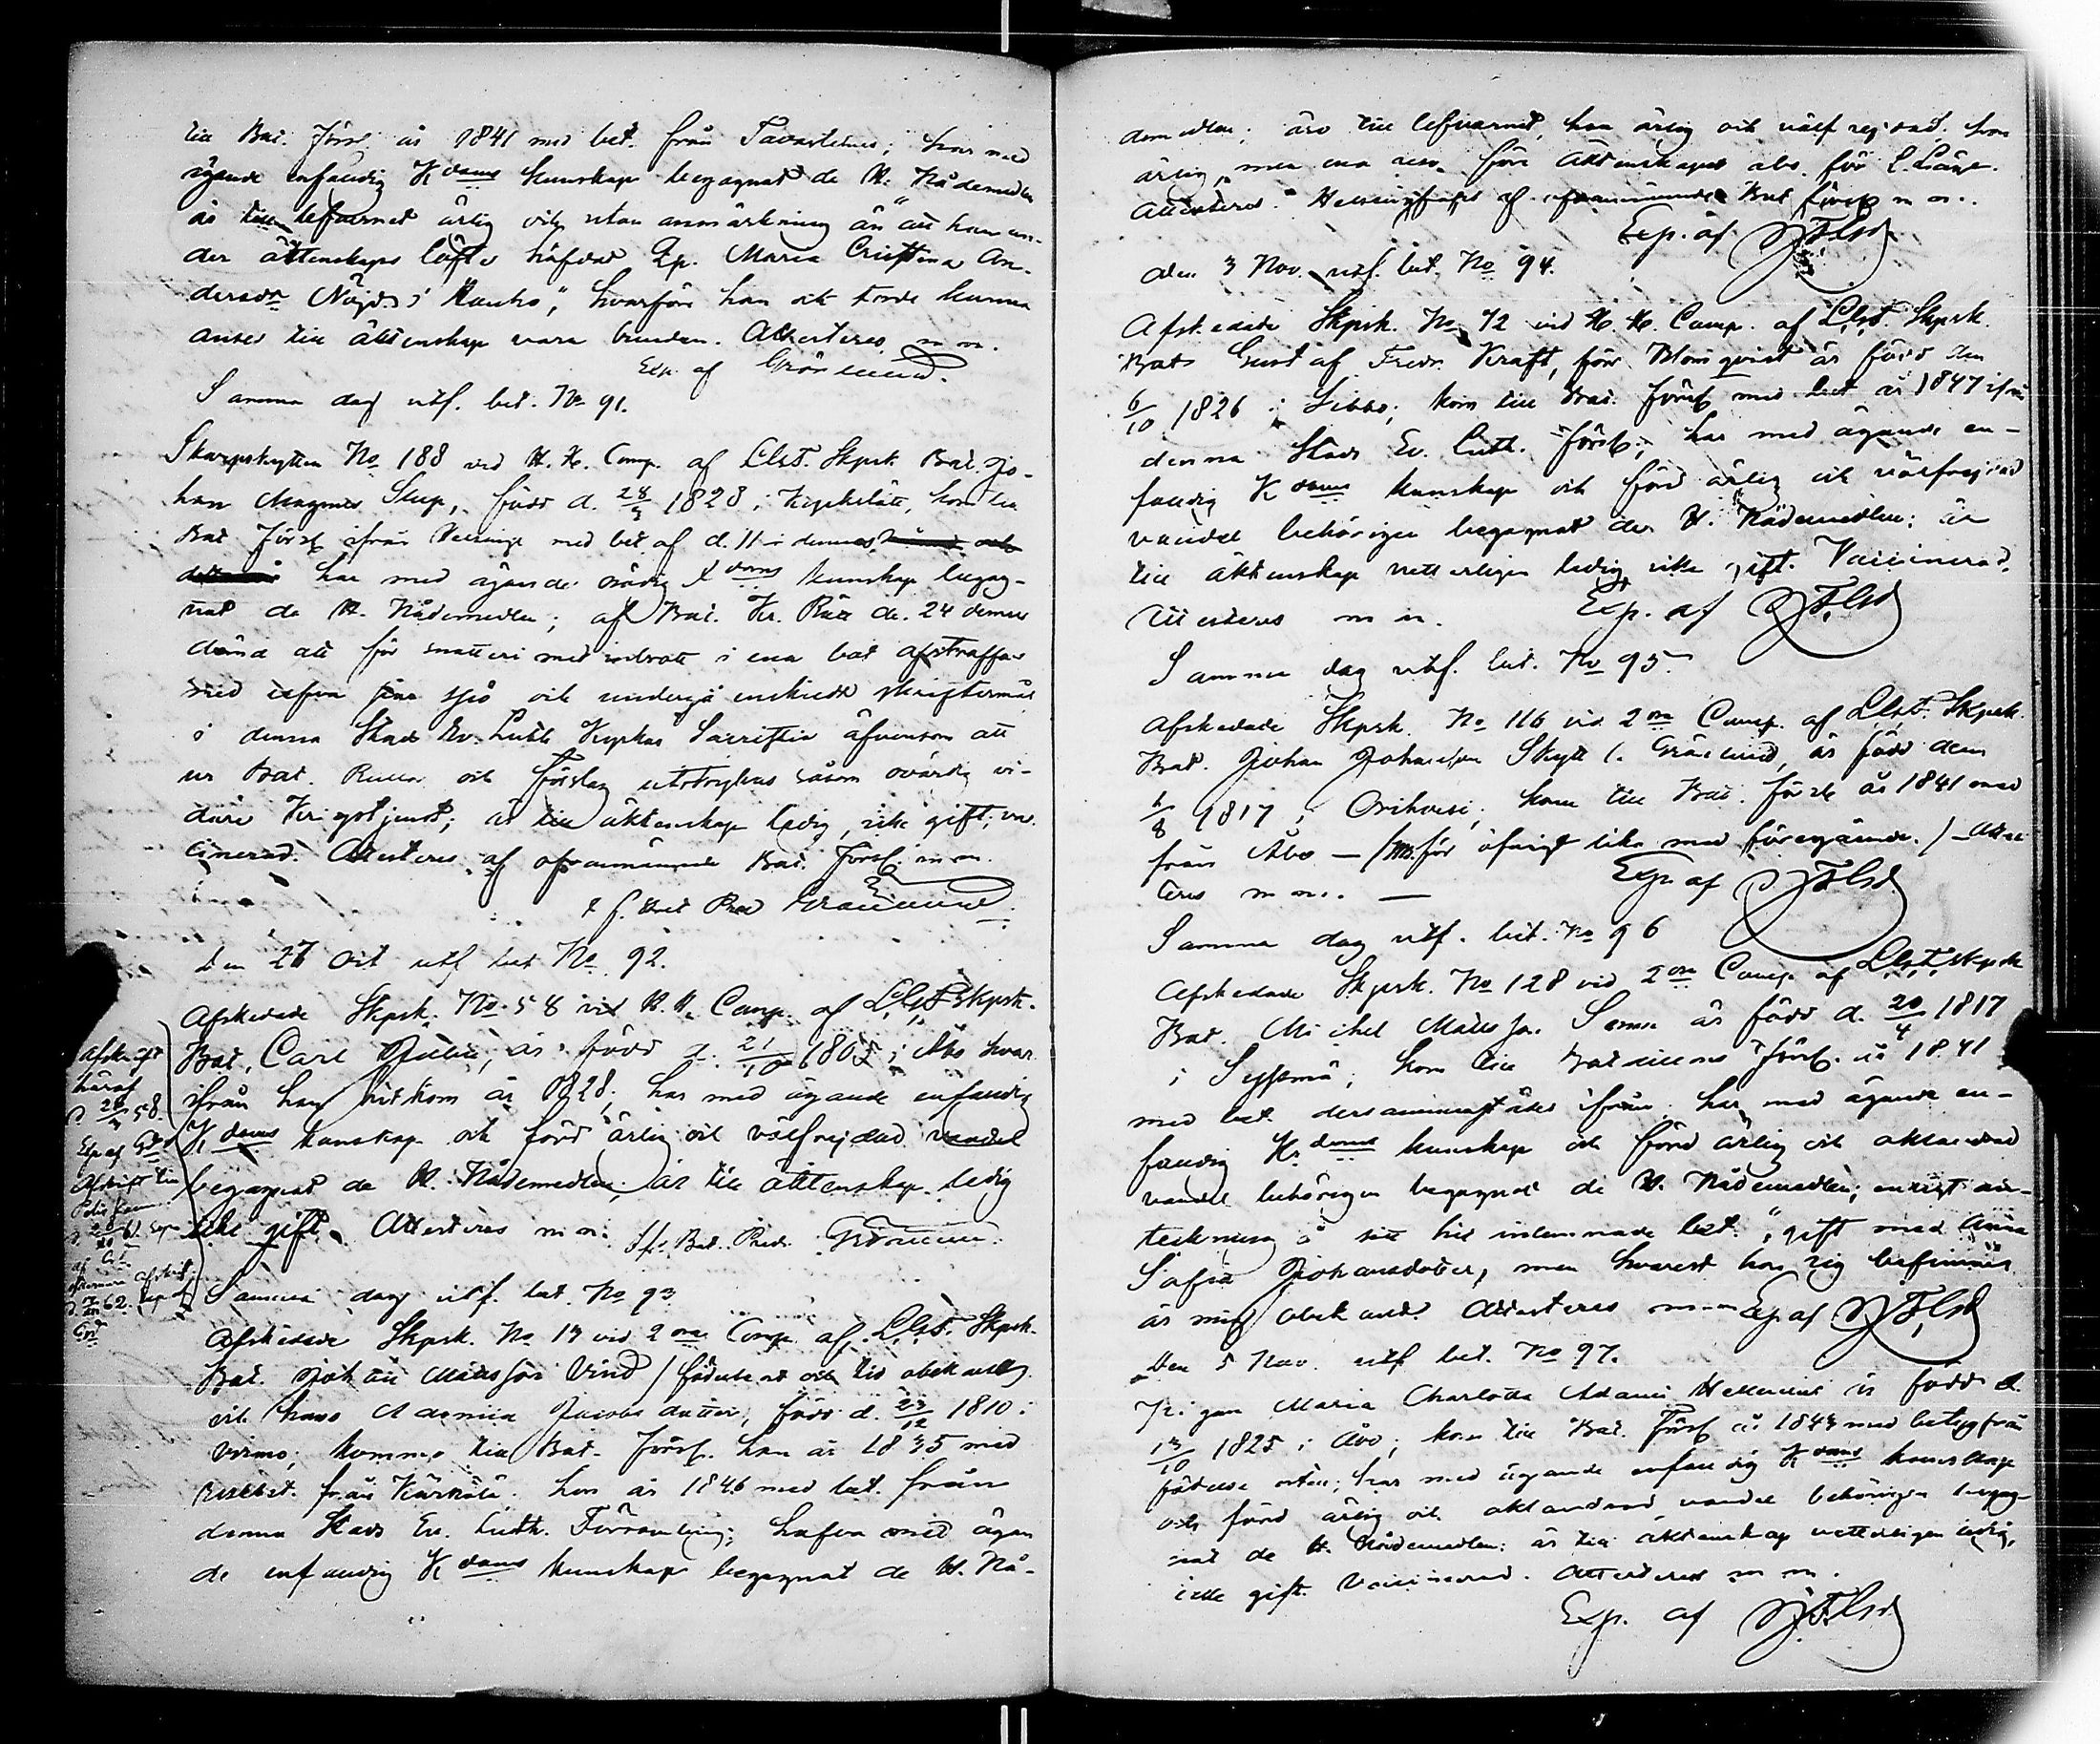 till Bat. Förs. år 1841 med bet. från Tavastehus; har med
ägande enfaldig Kdoms kunskap begagnat de H. Nådemedlen
är till lefvernet ärlig och utan anmärkning än "att han un-
der äktenskaps löfte häfdat Qp. Maria Cristina An-
dersdr Nöjd i Hauho", hvarföre han ock torde kunna
anses till äktenskap vara bunden. Attesteras m m.
Exp. af Grönlund.
Samma dag utf. bet. No 91.
Skarpskytten No 188 vid H. K. Comp. af L.g.s.T. Skpsk. Bat. Jo-
han Magnus Skup, född d. 28/3 1828 i Kyrkslätt, kom till
Bat Förs ifrån med bet af d. 11 i dennes
har med ägande nödig Kdoms kunskap begag-
nat de H. Nådemedlen; af Bat. Kr. Rätt d. 24 dennes
dömd att för snatteri med inbrott i ena bod afstraffas
med sju och undergå enskildt skriftermål
i denna Stads Ev. Luth Kyrkas Sacristia äfvensom att
ur Bat. Rulla och Förslag utstrykas såsom ovärdig vi-
dare Krigstjenst; är till äktenskap ledig, icke gift; vac-
cinerad. Attesteras af ofvannämnde Bat. Förs. m m.
Bat Pred Grönlund
den 27 Oct utf bet No 92.
Afskedade Skpsk. No 58 vid H. K. Comp. af L.g.s.T. Skpsk.
Bat. Carl Julin, är född d. 21/10 1805 i Åbo hvar
ifrån han hitkom år 1828; har med ägande enfaldig
Kdoms kunskap och förd ärlig och välfrejdad vandel
begagnat de H. Nådemedlen; är till äktenskap ledig
icke gift. Attesteras m m. Bat. Pred. Grönlund.
Afskrift
häraf
58.
Exp af
Afskrift till
Polis
61 Exp
af
62. Exp af
Samma dag utf. bet. No 93
Afskedade Skpsk. No 13 vid 2dra Comp. af L.g.s.T. Skpsk.
Bat. Johan Mattsson Vind / födelseort och tid obekant /
och hans Adamia Jacobsdotter, född d. 23/12 1810 i
Virmo; kommo till Bat. Förs. han år 1835 med
från Kärkölä. hon år 1846 med bet. från
denna Stads Ev. Luth. Församling; hafva med ägan
de enfaldig Kdoms kunskap begagnat de H. Nå-
demedlen; äro till lefvernet, han ärlig och välfrejdad. hon
ärlig, men ena resa före äktenskapet abs. för L.
Attesteras. Helsingfors af ofvannämnde Bat förs. m m.
Exp. af
den 3 Nov. utf. bet. No 94.
Afskedade Skpsk. No 72 vid H. K. Comp. af L.g.s.T. Skpsk.
Bat. Gustaf Fredr. Kraft, förr Blomqvist är född den
6/10 1826 i Sibbo; kom till Bat. Förs med bet år 1847 ifrån
denna Stads Ev. Luth. förs; har med ägande en-
faldig Kdoms kunskap och förd ärlig och välfrejdad
vandel behörigen begagnat de H. Nådemedlen; är
till äktenskap vetterligen ledig icke gift. Vaccinerad.
Attesteras m m. Exp. af
Samma dag utf. bet. No 95
Afskedade Skpsk. No 116 vid 2dra Comp. af L.g.s.T. Skpsk.
Bat. Johan Johansson Skytt l. Grönlund, är född den
8 1817 i Orihvesi; kom till Bat. förs år 1841 med
från Åbo — / för öfrigt lika med föregående. / — Attes
teras m m. — Exp af
Samma dag utf. bet. No 96
Afskedade Skpsk. No 128 vid 2dra Comp. af L.g.s.T. Skpsk
Bat. Michel Mattsson är född d. 20/4 1817
i Sysmä; kom till Bataillons förs. år 1841
med bet. ifrån; har med ägande en-
faldig Kr.doms kunskap och förd ärlig och oklandrad
vandel behörigen begagnat de H. Nådemedlen; enligt an-
teckning å sitt hit inlemnade bet. "gift med Anna
Sofia Johansdotter, men hvarest hon sig befinner
är mig obekant. Attesteras m m Exp af
Den 5 Nov. utf bet. No 97.
Pigan Maria Charlotta Adami Hellenius är född d.
13/10 1825 i Åbo; kom till Bat. Förs år 1843 med betyg från
födelse orten; har med ägande enfaldig Kdoms kunskap
och förd ärlig och oklandrad vandel behörigen begag-
nat de H. Nådemedlen; är till äktenskap vetterligen ledig,
icke gift. Vaccinerad. Attesteras m m.
Exp. af